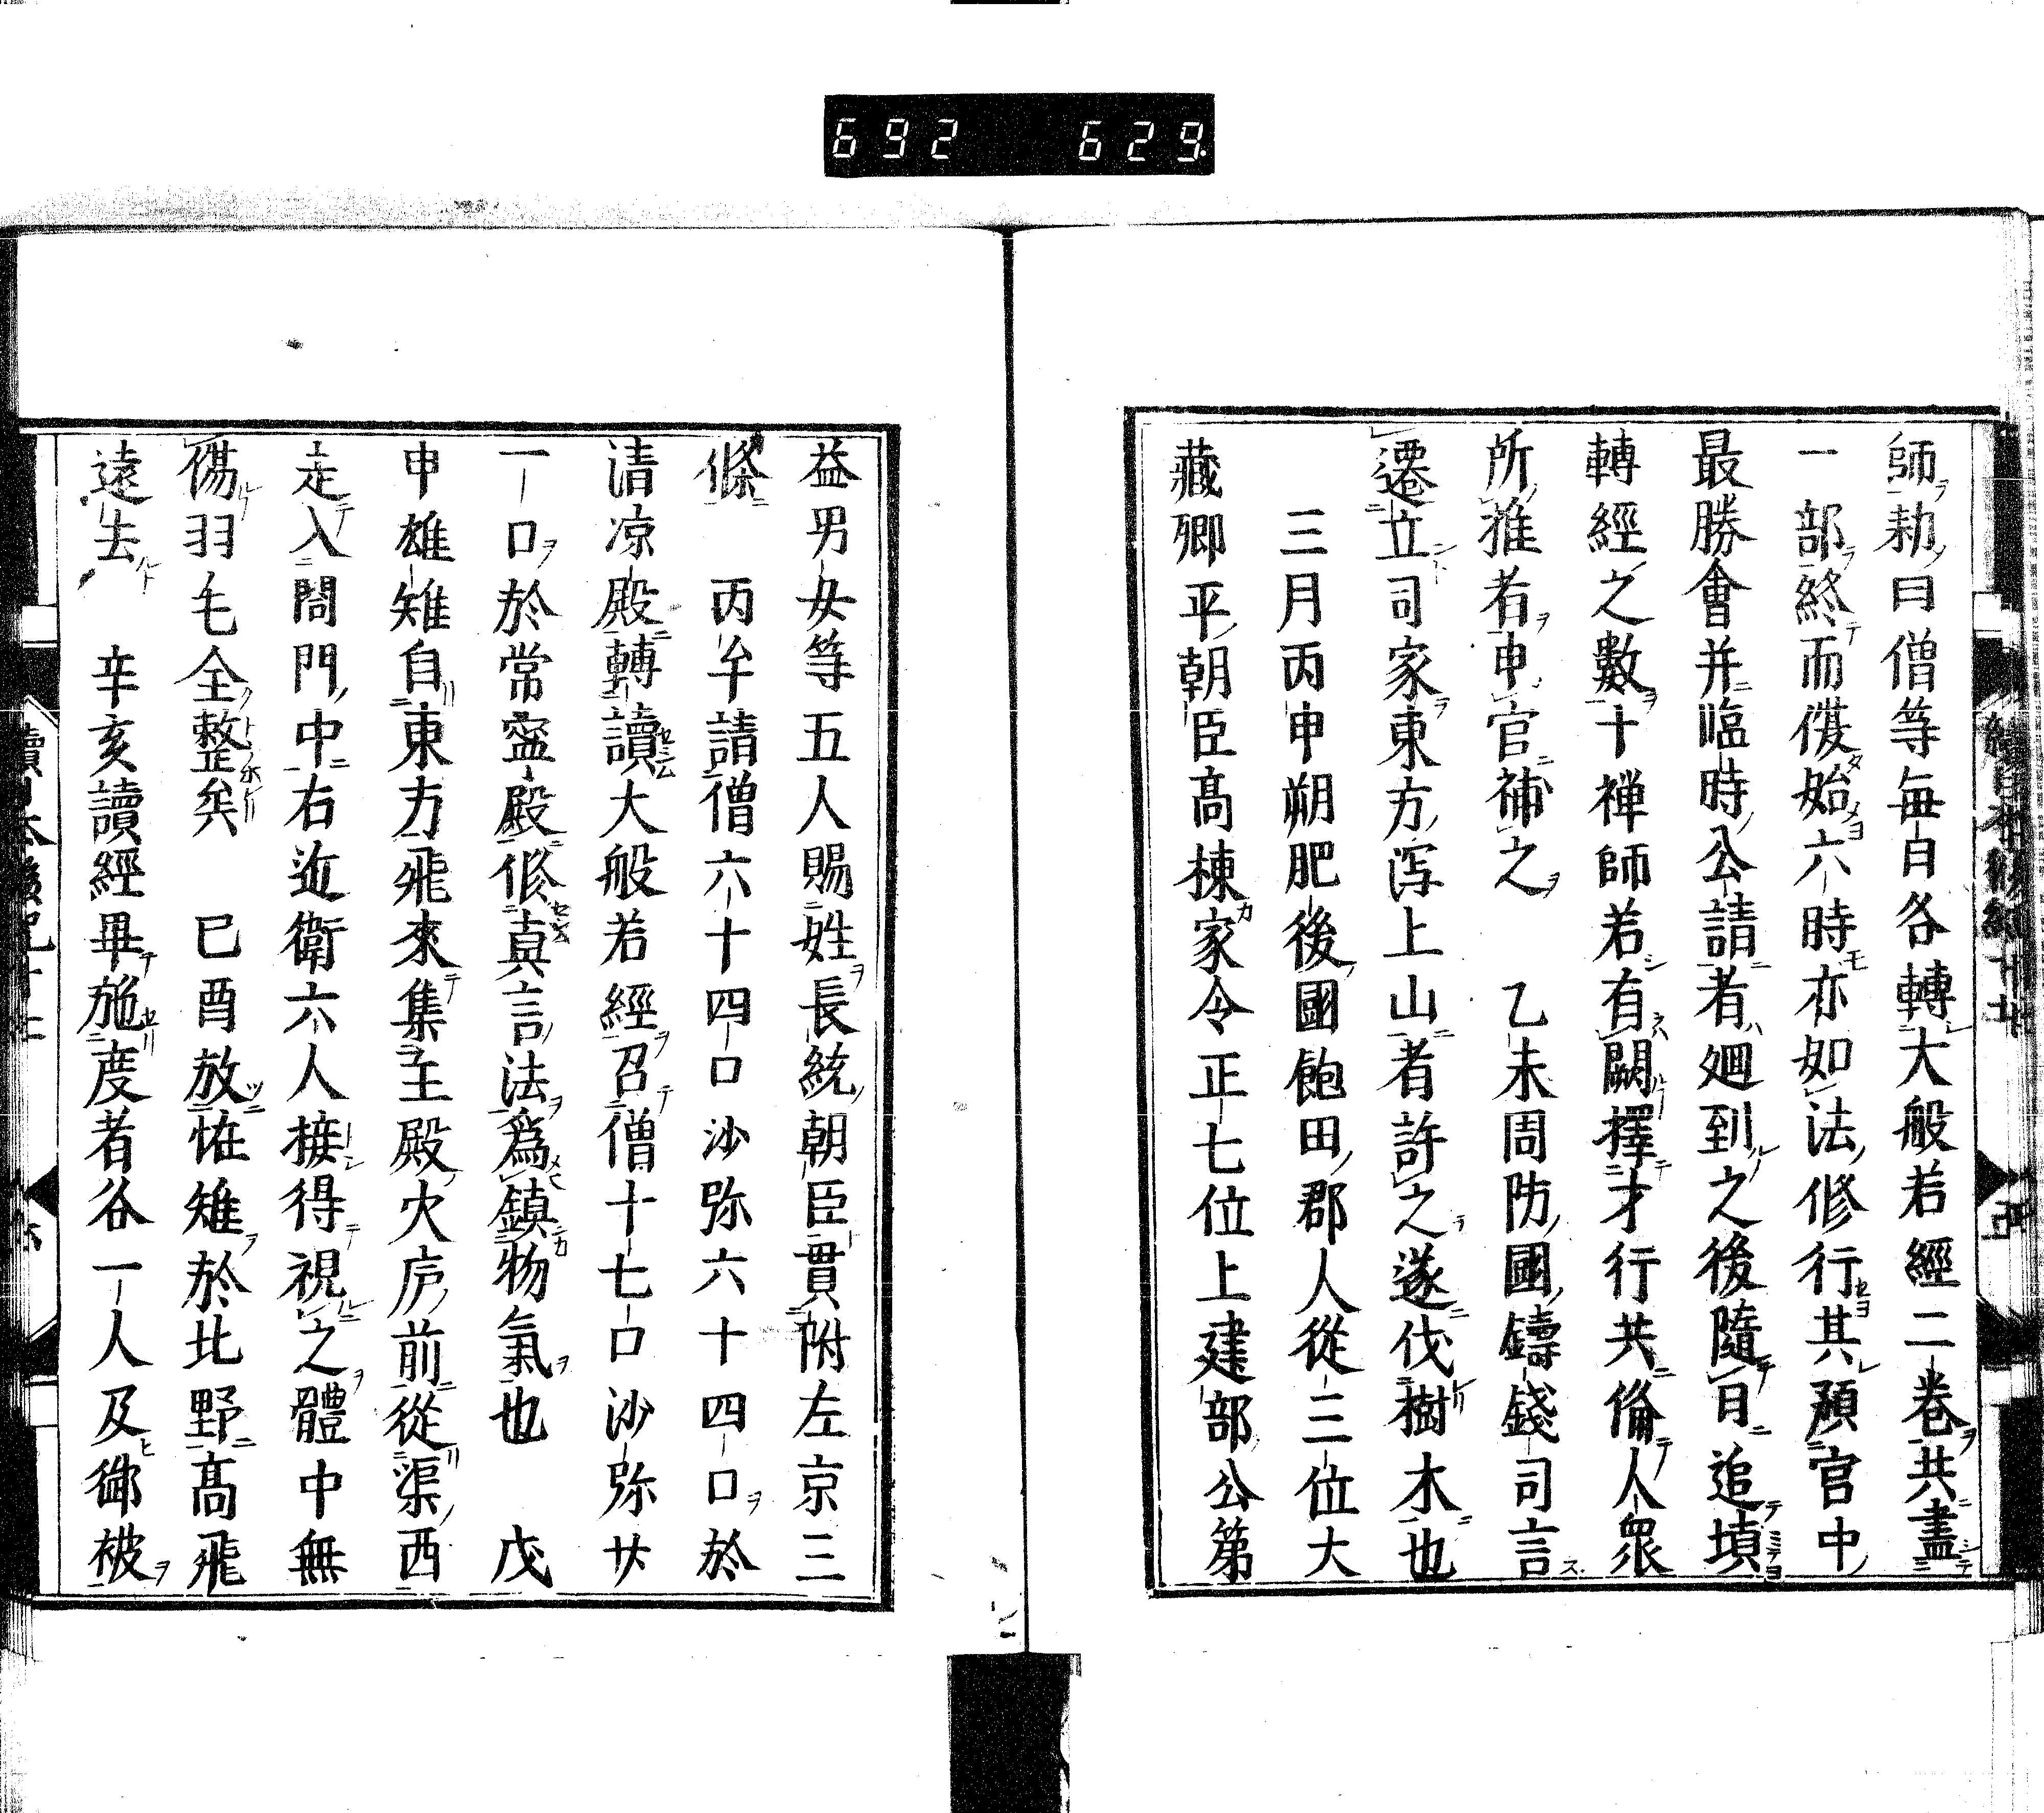 692 629
師勅曰僧等毎日各轉大般若經二巻共盡
一部終而復始六時亦如法修行其預宮中
最勝會并臨時公請者廻到之後隨日追塡
轉經之數十禅師若有闕擇才行共倫人衆
所推者申官補之　乙未周防國鑄錢司言
遷立司家東方潟上山者許之遂伐樹木也
三月丙申朔肥後國飽田郡人從三位大
藏卿平朝臣高棟家令正七位上建部公第
益男女等五人賜姓長統朝臣貫附左京三
條　丙午請僧六十四口沙弥六十四口於
清凉殿轉讀大般若經召僧十七口沙弥廿
一口於常寧殿修真言法爲鎮物氣也　戊
申雄雉自東方飛來集主殿火庐前從渠西
走入閤門中右近衛六人接得視之體中無
傷羽毛全整矣　已酉放恠雉於北野高飛
遠去　辛亥讀經畢施度者各一人及御被